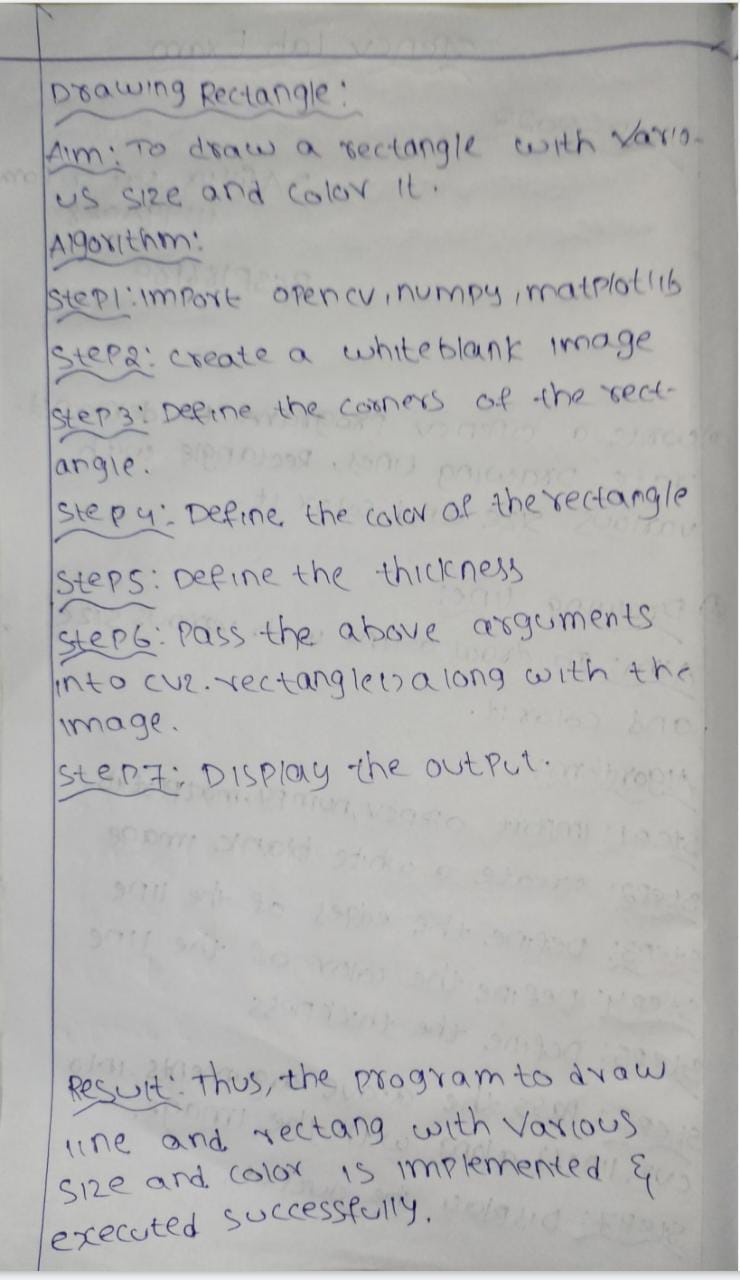 Drawing Rectangle:
Aim: To draw a rectangle with vario-
us size and color it.
Algorithm:
Step1: import opencv, numpy, matplotlib
Step2: create a white blank image
Step3: Define the corners of the rect-
angle.
Step4: Define the color of the rectangle
Step5: Define the thickness
Step6: Pass the above arguments
into cv2.rectangle() along with the
image.
Step7: Display the output.
Result: Thus, the program to draw
line and rectang with various
size and color is implemented &
executed successfully.